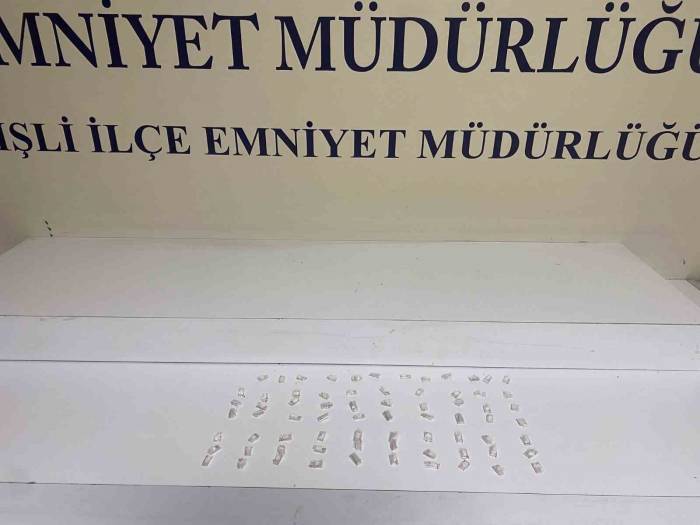 MNİYET MÜDÜRLÜĞÜ
İŞLİ İLÇE EMNİYET MÜDÜRLÜĞÜ